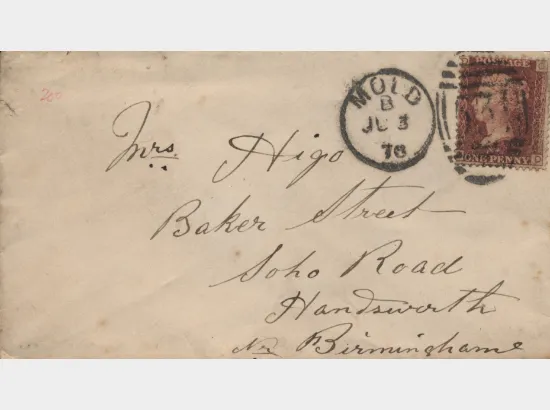 260
MOLD
B
JU 3
78
POSTAGE
ONE PENNY
Mrs. Higo
Baker Street
Soho Road
Handsworth
Nr Birminghame